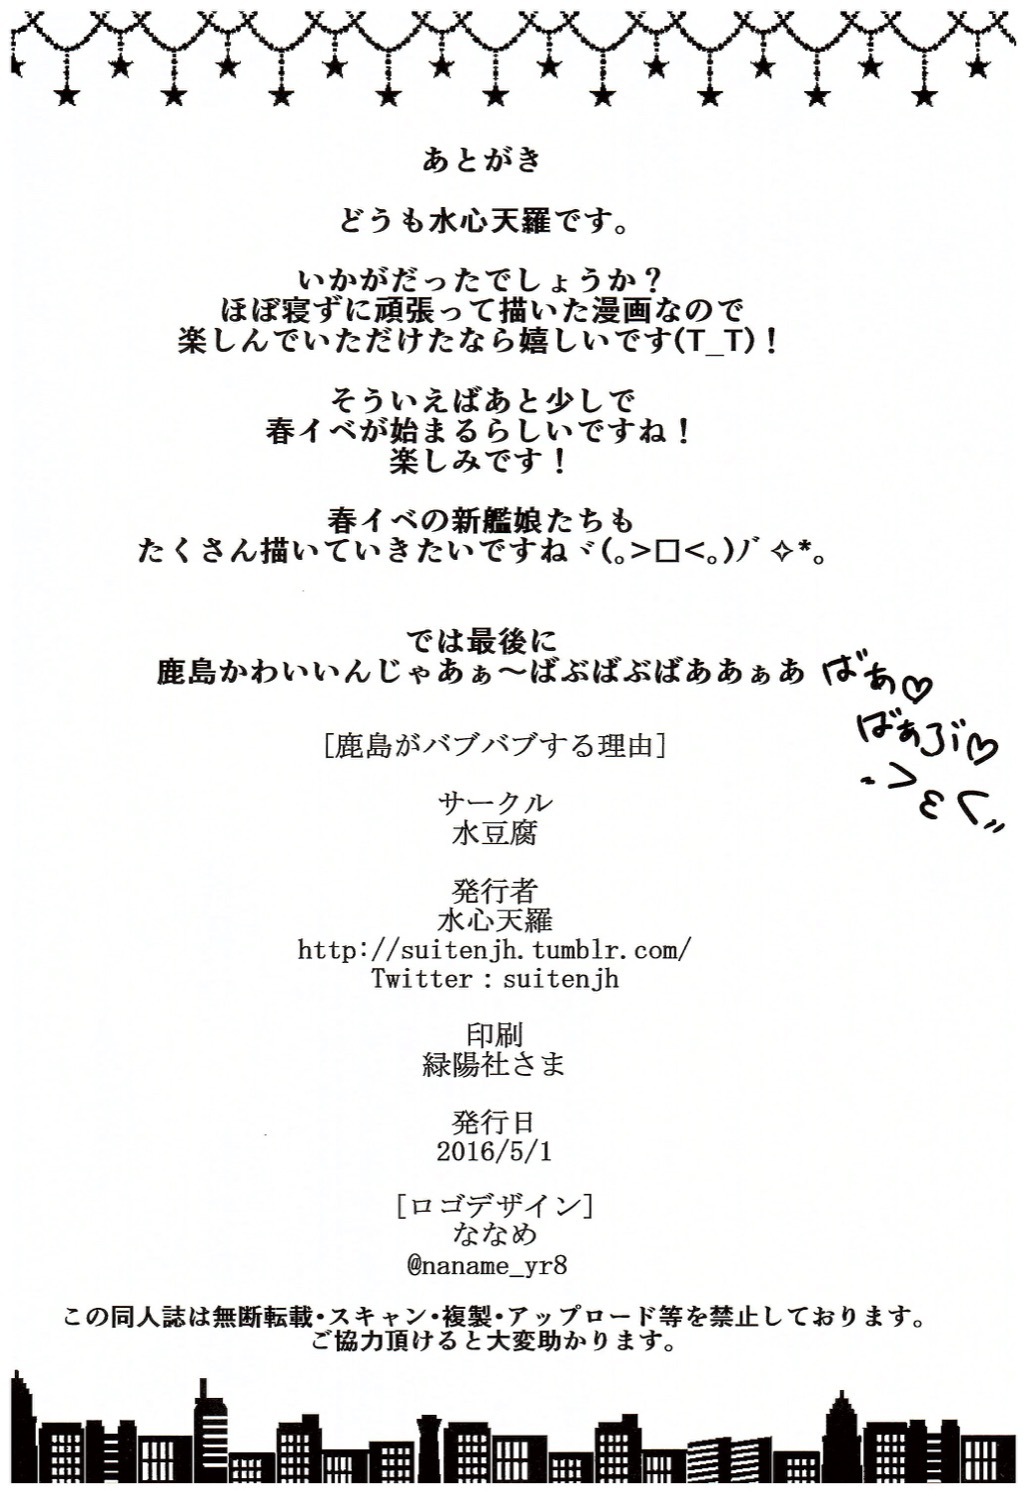 あとがき
どうも水心天羅です。
いかがだったでしょうか？
ほぼ寝ずに頑張って描いた漫画なので
楽しんでいただけたなら嬉しいです(T_T)！
そういえばあと少しで
春イベが始まるらしいですね！
楽しみです！
春イベの新艦娘たちも
たくさん描いていきたいですねヾ(｡>□<｡)ﾉﾞ✧*。
では最後に
鹿島かわいいんじゃあぁ～ばぶばぶばああぁあ
ばあ♡
ばあぶ♡
[鹿島がバブバブする理由]
サークル
水豆腐
発行者
水心天羅
http://suitenjh.tumblr.com/
Twitter：suitenjh
印刷
緑陽社さま
発行日
2016/5/1
[ロゴデザイン]
ななめ
@naname_yr8
この同人誌は無断転載・スキャン・複製・アップロード等を禁止しております。
ご協力頂けると大変助かります。